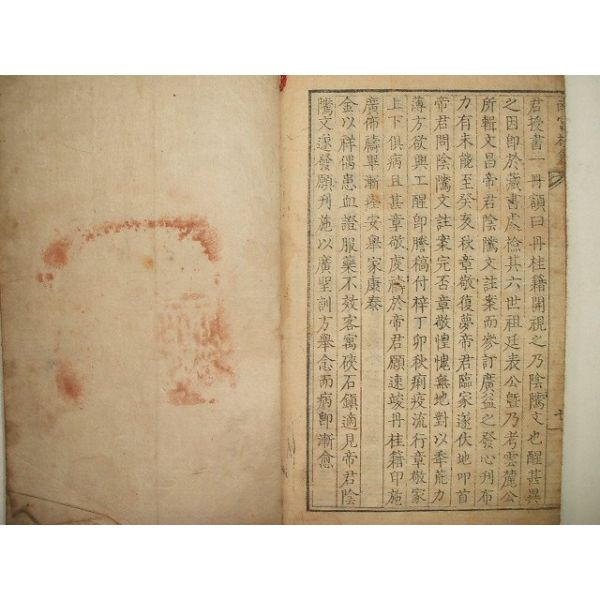 君授書一冊額曰丹桂籍開視之乃陰隲文也醒甚異
之因即於藏書處檢其六世祖廷表公曁乃考雲麓公
所輯文昌帝君陰隲文註案而參訂廣益之發心刋布
力有未能至癸亥秋章敬復夢帝君臨家遂伏地叩首
帝君問陰隲文註案完否章敬惶愧無地對以乖蔇力
薄方欲興工醒卽謄稿付梓丁卯秋痢疫流行章敬家
上下俱病且甚章敬虔禱於帝君願速竣丹桂籍印施
廣佈禱畢漸痊安舉家康泰
金以祥偶患血證服藥不效客寓硤石鎮適見帝君陰
隲文遂發願刋施以廣聖訓方舉念而病卽漸愈